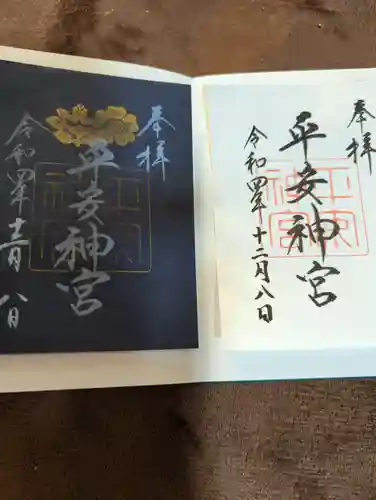 奉拝
平安神宮
令和四年十二月八日
奉拝
平安神宮
令和四年十二月八日